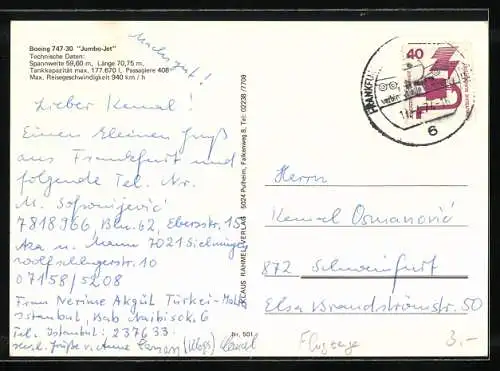 Boeing 747-30 "Jumbo-Jet"
Technische Daten:
Spannweite 59,60 m, Länge 70,75 m,
Tankkapazität max. 177.670 l, Passagiere 408
Max. Reisegeschwindigkeit 940 km/h
Lieber Kemal!
Einen kleinen Gruß
aus Frankfurt und
folgende Tel. Nr.
M. Sofronijević
7818966, Bln. 62, Ebersstr. 15
7021 Sielmingen
10
07158/5208
Frau Nerime Akgül Türkei-
Istanbul, Bab 6
Tel. Istanbul: 237633
KLAUS RAHMEL-VERLAG 5024 Pulheim, Falkenweg 8, Tel: 02238/7709
Nr. 501
FRANKFU
6
40
Herrn
Kemal Osmanović
872 Schweinfurt
Elsa Brandströmstr. 50
Flugzeuge
3.-